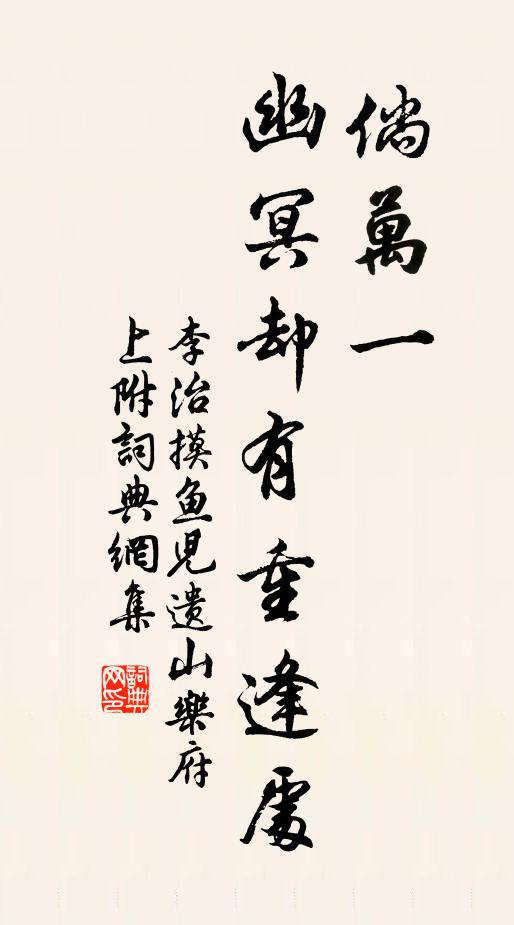 倘萬一
幽冥却有重逢處
李治摸鱼児遗山樂府
上附詞典網集
詞典
网印